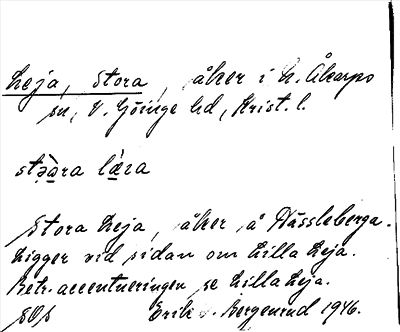 Leja, Stora, åker i N. Åkarps
sn, V. Göinge hd, Krist. l.
stǫ̀ǫra lɛ́ɪa
Stora Leja, åker å Nässleberga.
Ligger vid sidan om Lilla Leja.
Betr. accentueringen, se Lilla Leja.
Erik Bergenrud 1946.